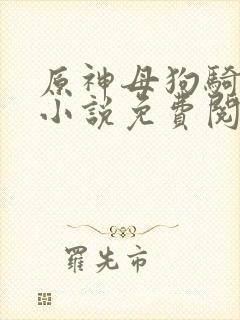 原神母狗騎
小説免費閱
羅先市